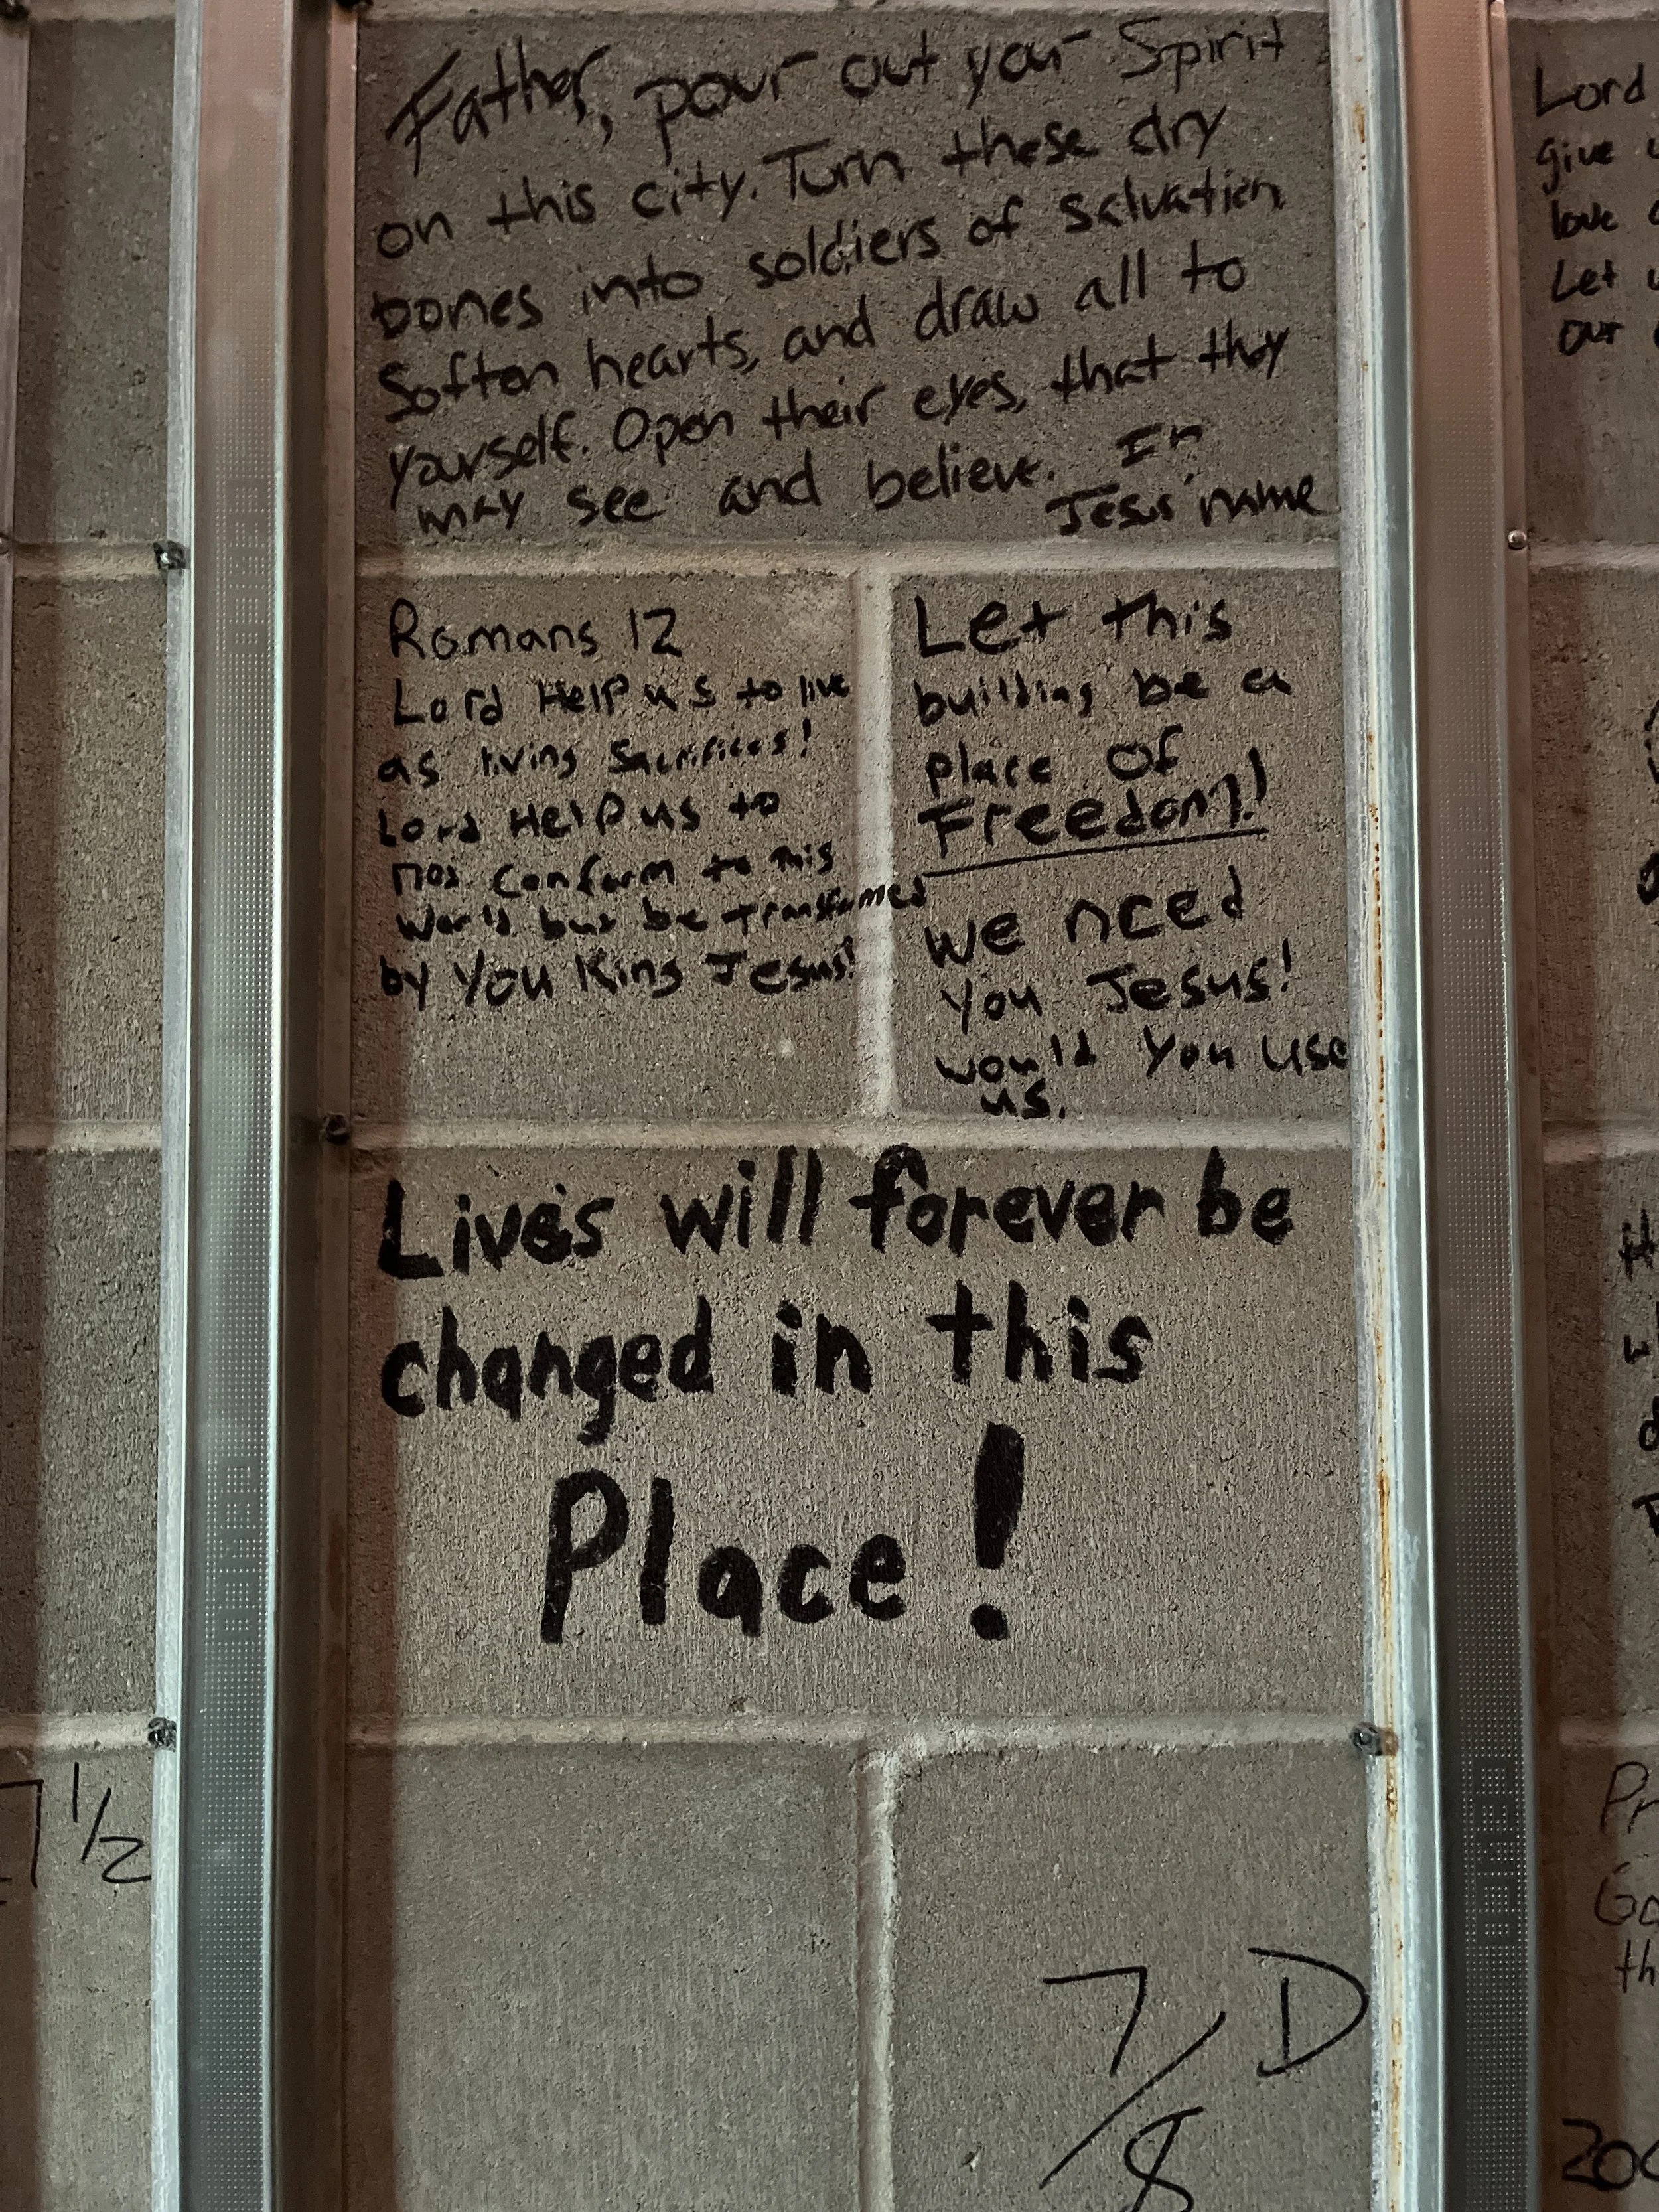 Father, pour out your Spirit
on this city. Turn these dry
bones into soldiers of salvation.
Soften hearts, and draw all to
yourself. Open their eyes, that they
may see and believe. In
Jesus' name
Romans 12
Lord Help us to live
as living Sacrifices!
Lord Help us to
not conform to this
World but be Transformed
by You King Jesus!
Let this
building be a
place of
Freedom!!
we need
you Jesus!
would you use
us.
Lives will forever be
changed in this
Place!
7/8 D
7 1/2
Lord
give
love
Let
our